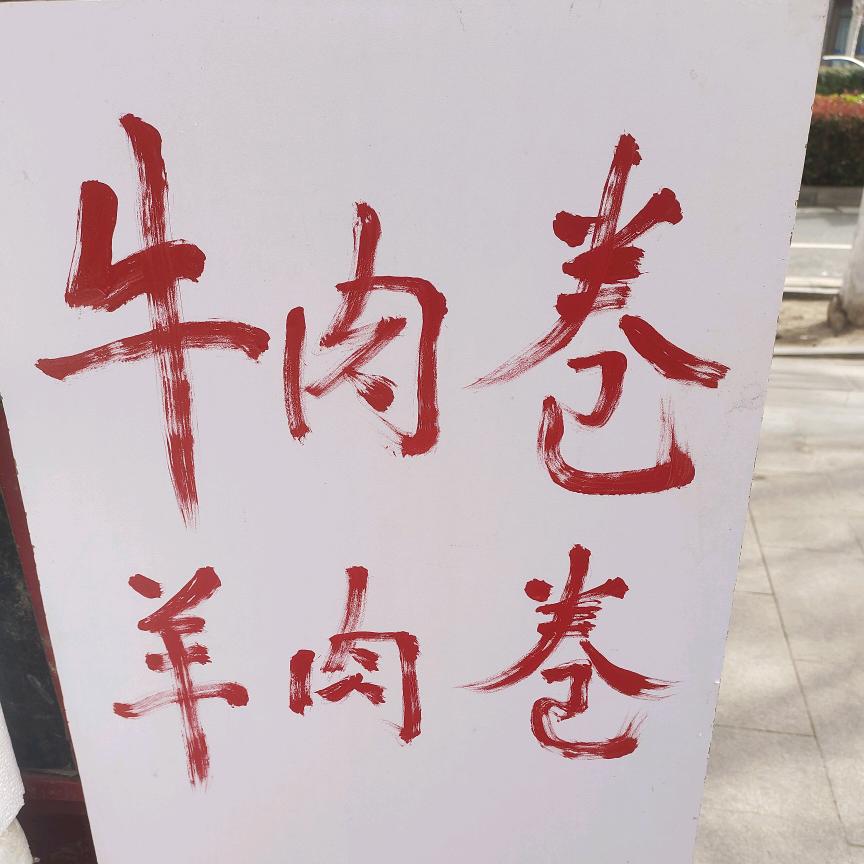 牛肉卷
羊肉卷